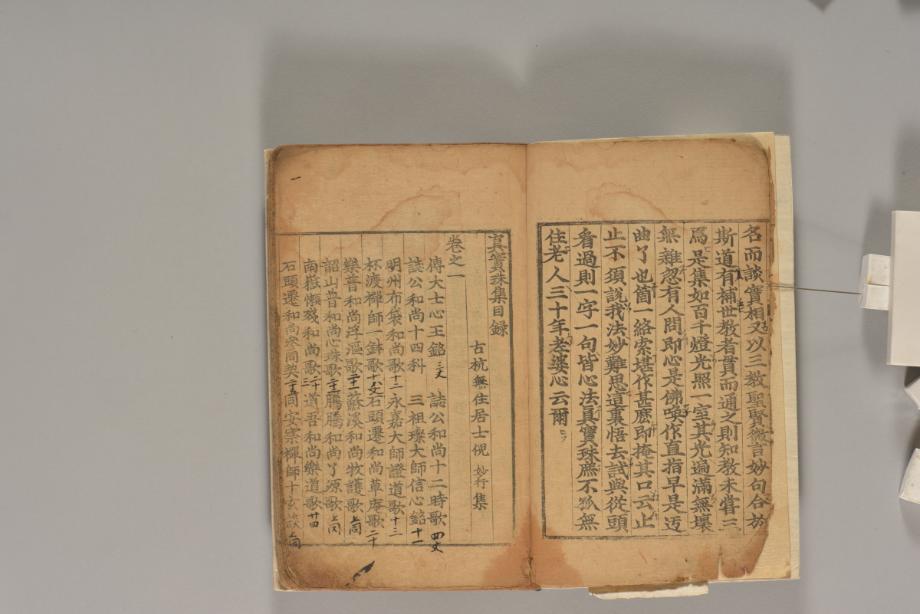 名而談實相又以三教聖賢微言妙句合於
斯道有補世教者貫而通之則知教未嘗三
爲是集如百千燈光照一室其光遍滿無壞
無雜忽有人問即心是佛喚作直指早是迃
曲了也箇一絡索堪作甚麽即掩其口云止
止不須說我法妙難思這裏悟去試與從頭
看過則一字一句皆心法眞寶珠庶不孤無
住老人三十年老婆心云爾
眞實珠集目錄
古杭無住居士倪 妙行 集
卷之一
傅大士心王銘 三丈 誌公和尚十二時歌 四丈
誌公和尚十四科 三祖璨大師信心銘 十一
明州布袋和尚歌 十二 永嘉大師證道歌 十三
杯渡禪師一鉢歌 十八丈 石頭遷和尚草庵歌 二十
樂普和尚浮漚歌 二十一 蘇溪和尚牧護歌 上同
韶山普和尚心珠歌 騰騰和尚了源歌 上同
南嶽懶殘和尚歌 道吾和尚樂道歌 廿四
石頭遷和尚叅同契 同安察禪師十玄談 上同